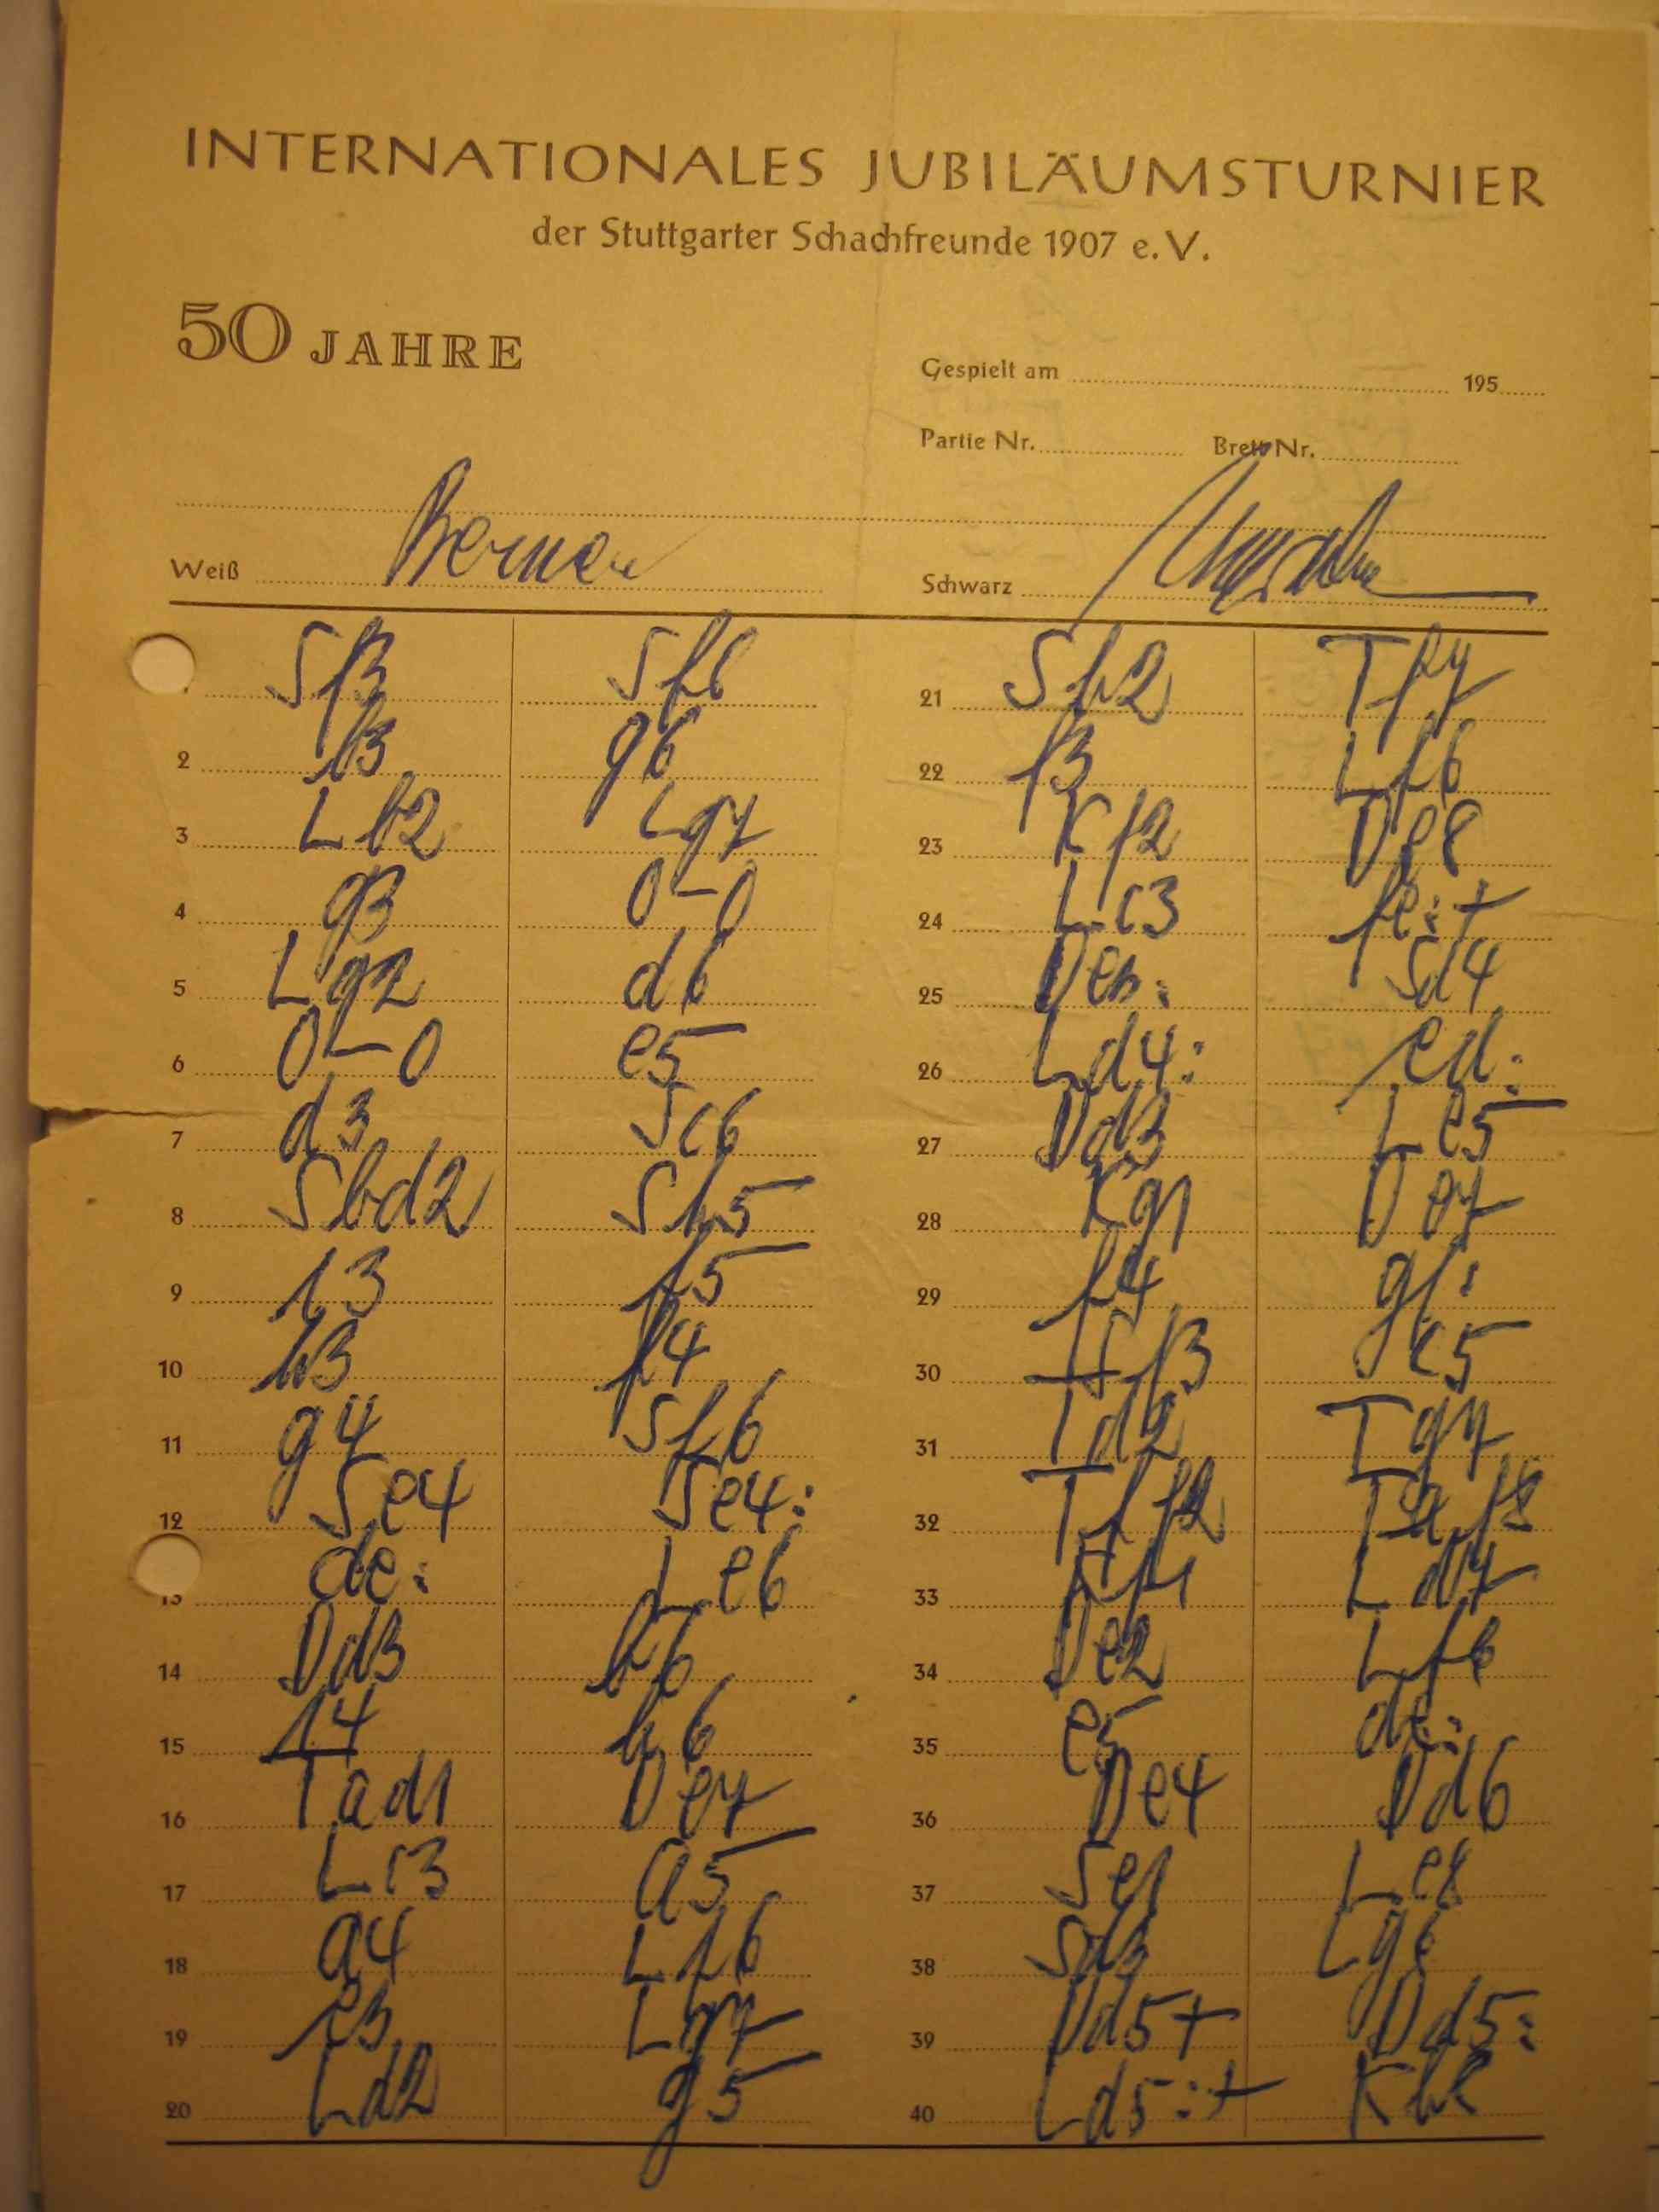 INTERNATIONALES JUBILÄUMSTURNIER
der Stuttgarter Schachfreunde 1907 e. V.
50 JAHRE
Gespielt am 195
Partie Nr. Brett Nr.
Weiß Schwarz
Sf3 Sf6 21 Sh2 Tf7
2 b3 g6 22 f3 Lf6
3 Lb2 Lg7 23 Kf2 De8
4 g3 0-0 24 Lc3 fe:+
5 Lg2 d6 25 De3: Sd4
6 0-0 e5 26 Ld4: ed:
7 d3 Sc6 27 Dd3 Le5
8 Sbd2 Sh5 28 Kg1 De7
9 e3 f5 29 f4 gf:
10 h3 f4 30 Sf3 c5
11 g4 Sf6 31 Td2 Tg7
12 Se4 Se4: 32 Tff2 Taf8
de: Le6 33 Lf1 Ld7
14 Dd3 b6 34 De2 Lf6
15 c4 h6 35 e5 de:
16 Tad1 De7 36 De4 Dd6
17 Lc3 a5 37 Se1 Le8
18 a4 Lf6 38 Sd3 Lg6
19 e3 Lg7 39 Dd5+ Dd5:
20 Ld2 g5 40 Ld5:+ Kh8